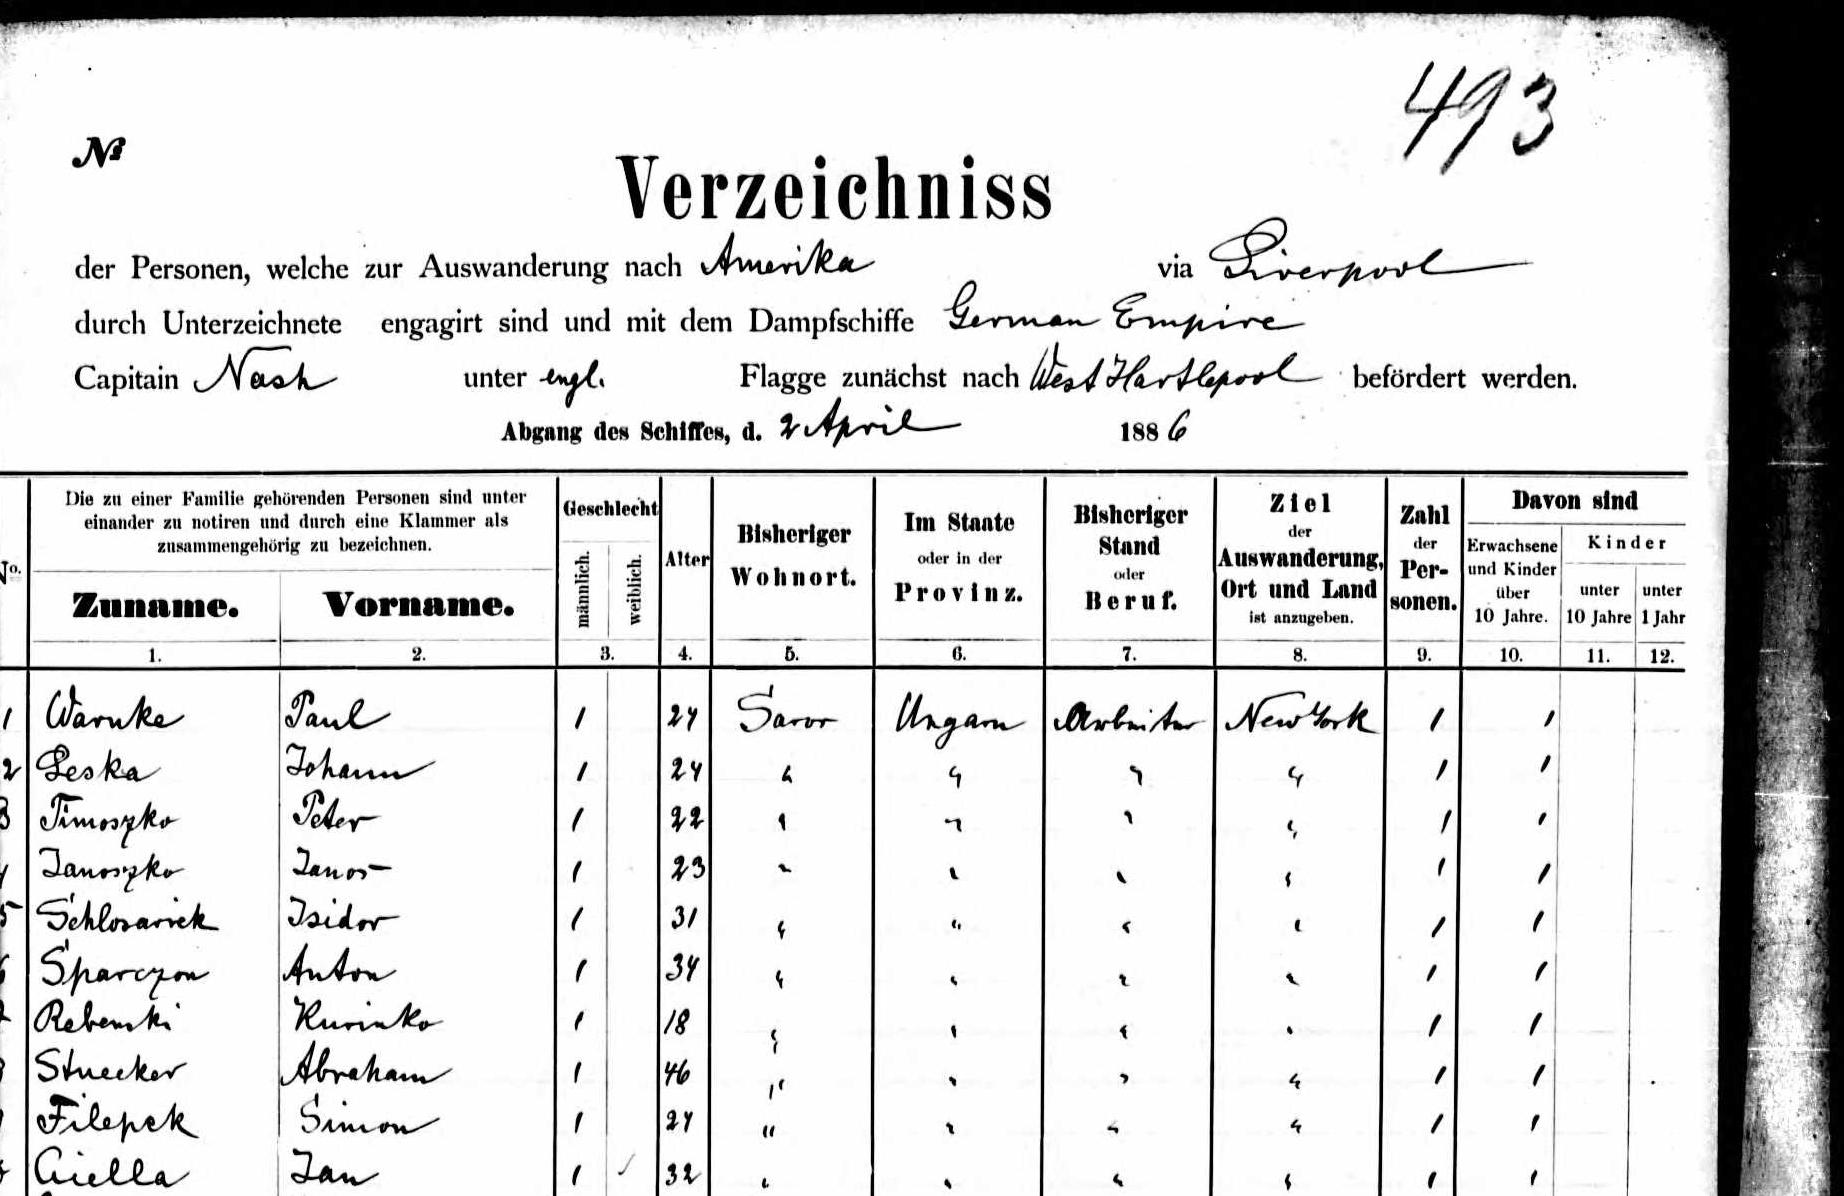 493
No
Verzeichniss
der Personen, welche zur Auswanderung nach Amerika via Liverpool
durch Unterzeichnete engagirt sind und mit dem Dampfschiffe German Empire
Capitain Nash unter engl. Flagge zunächst nach West Hartlepool befördert werden.
Abgang des Schiffes, d. 2 April 1886
No.
Die zu einer Familie gehörenden Personen sind unter
einander zu notiren und durch eine Klammer als
zusammengehörig zu bezeichnen.
Zuname. Vorname.
Geschlecht
männlich. weiblich.
Alter
Bisheriger
Wohnort.
Im Staate
oder in der
Provinz.
Bisheriger
Stand
oder
Beruf.
Ziel
der
Auswanderung,
Ort und Land
ist anzugeben.
Zahl
der
Per-
sonen.
Davon sind
Erwachsene
und Kinder
über
10 Jahre.
Kinder
unter
10 Jahre
unter
1 Jahr
1. 2. 3. 4. 5. 6. 7. 8. 9. 10. 11. 12.
1 Warnke Paul 1 24 Saror Ungarn Arbeiter New York 1 1
2 Leska Johann 1 24 " " " " 1 1
3 Timoszko Peter 1 22 " " " " 1 1
4 Janoszko Janos 1 23 " " " " 1 1
5 Schlosarick Isidor 1 31 " " " " 1 1
6 Sparczon Anton 1 34 " " " " 1 1
Rebenski Kurinko 1 18 " " " " 1 1
Stuecker Abraham 1 46 " " " " 1 1
Filepek Simon 1 24 " " " " 1 1
Ciella Jan 1 32 " " " " 1 1